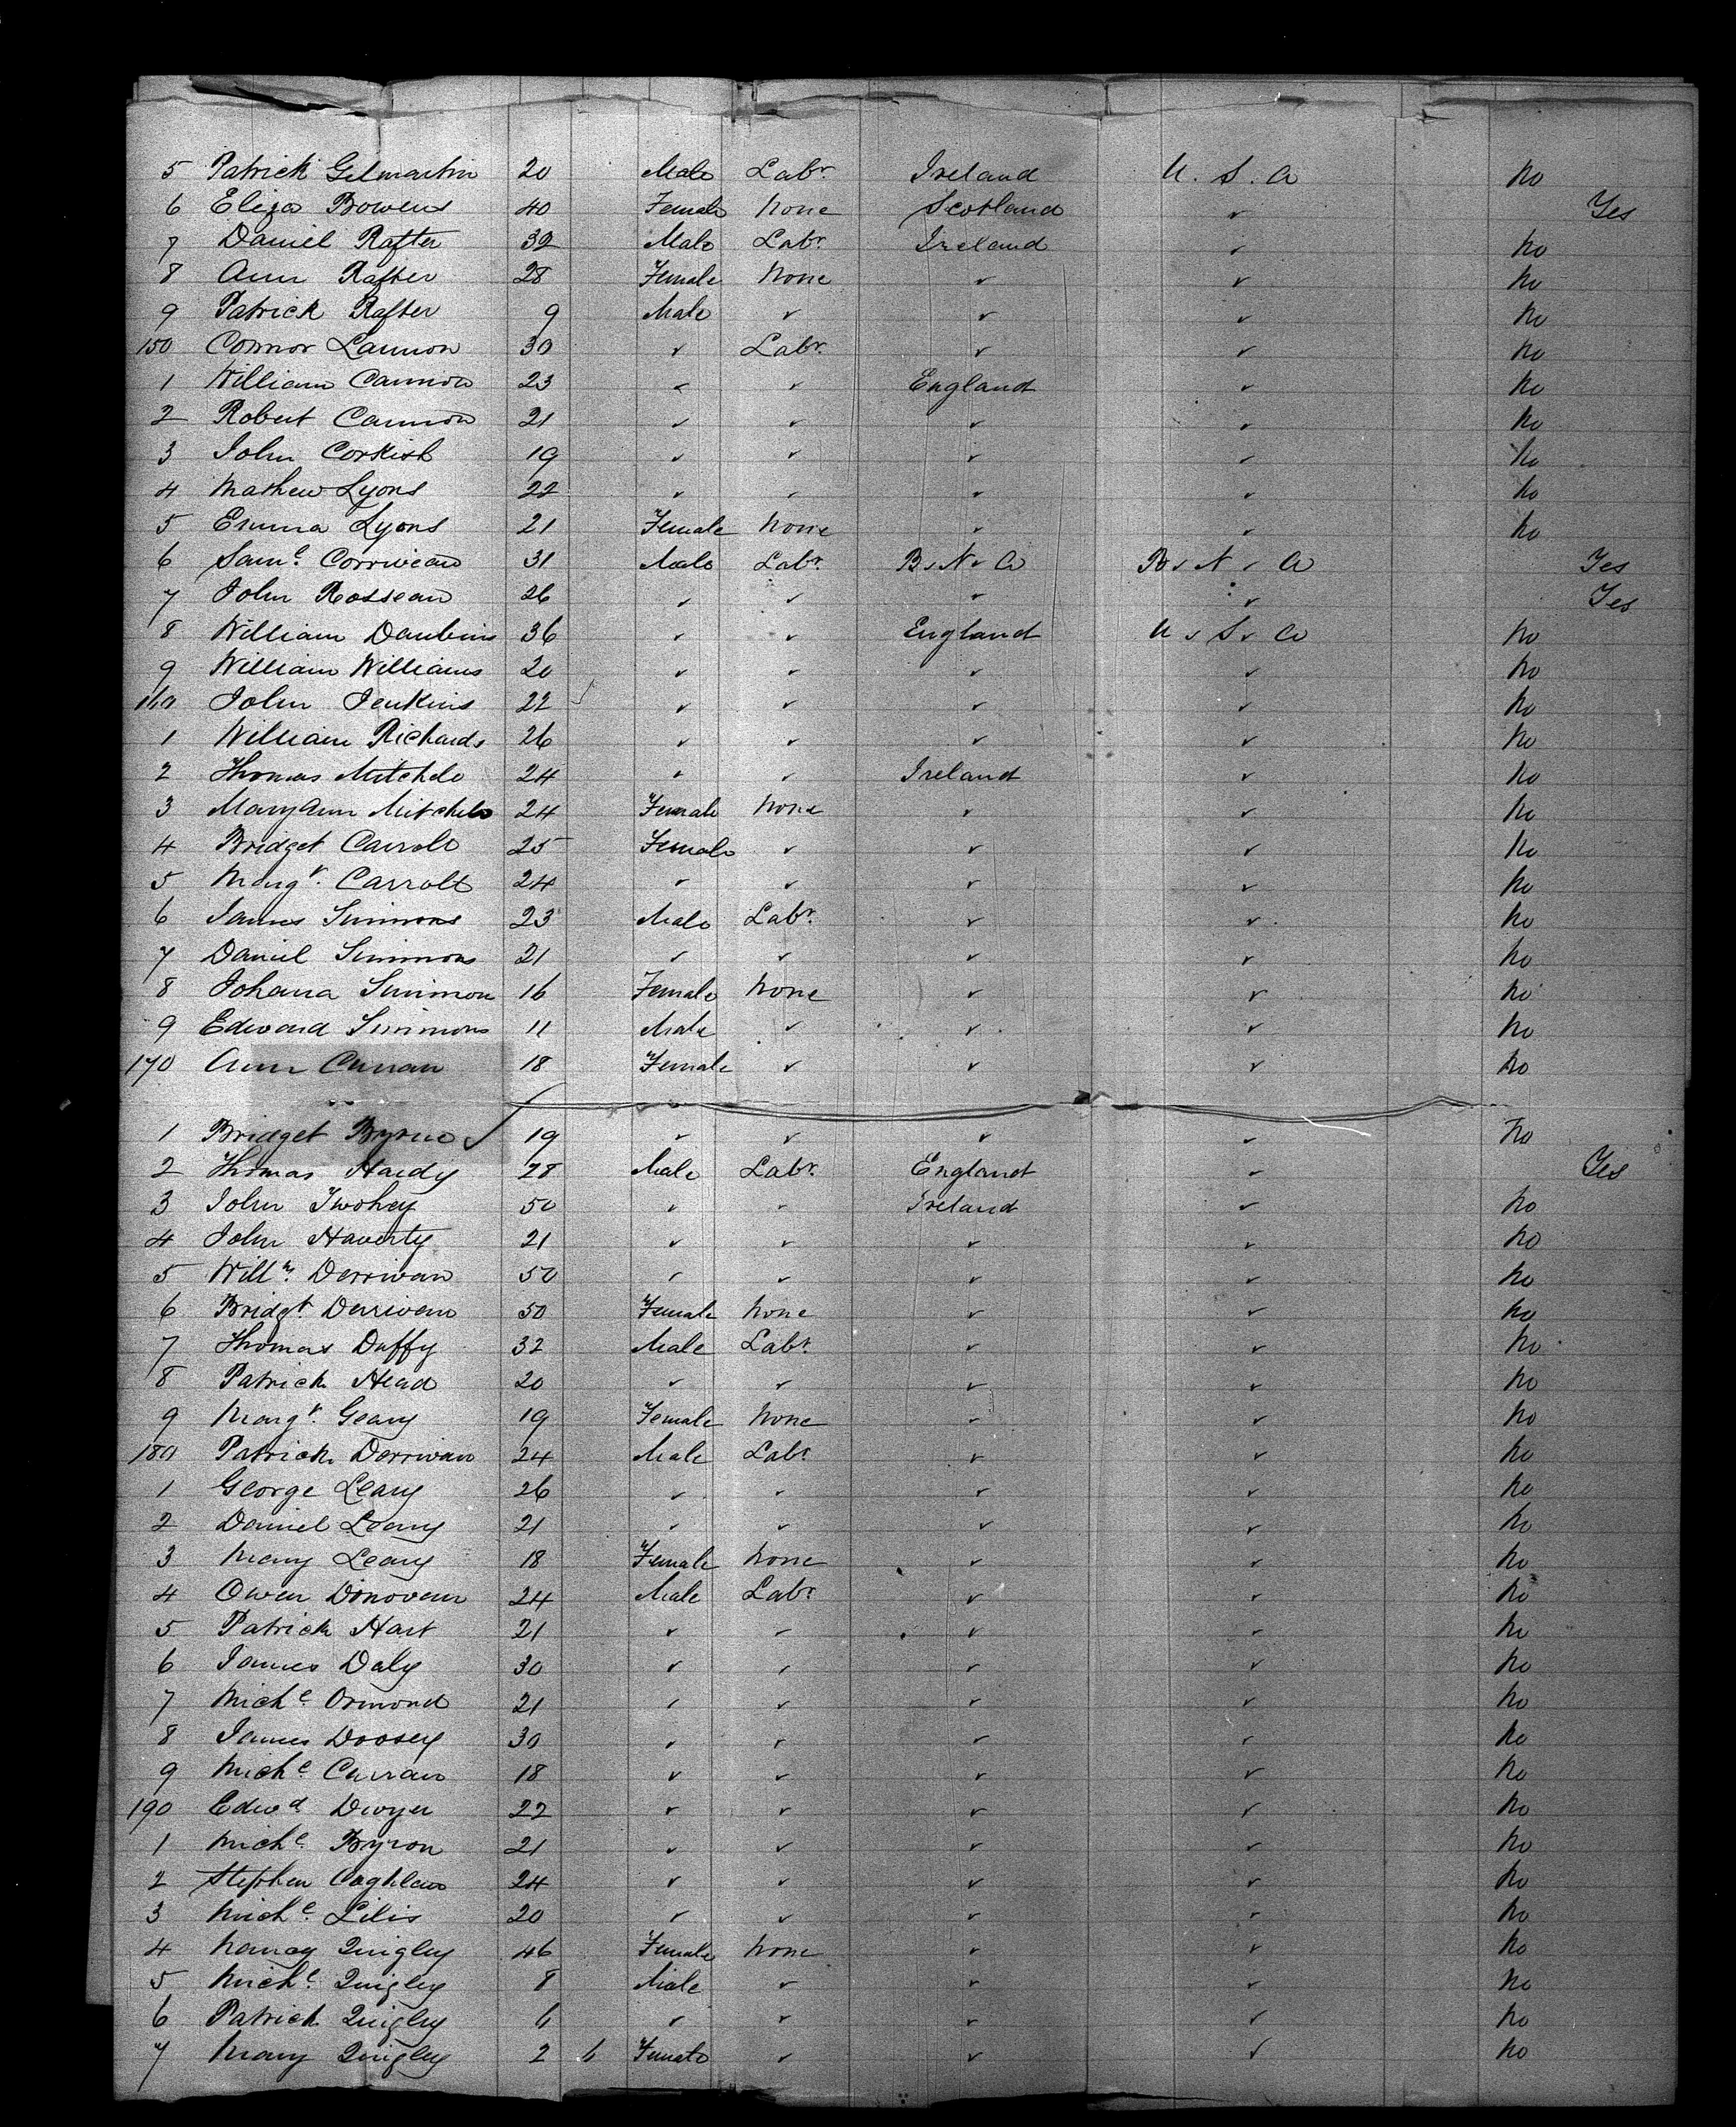 5 Patrick Gilmartin 20 Male Labr. Ireland U. S. A No
6 Eliza Bowens 40 Female None Scotland ✓ Yes
7 Daniel Rafter 32 Male Labr. Ireland ✓ No
8 Ann Rafter 28 Female None ✓ ✓ No
9 Patrick Rafter 9 Male ✓ ✓ ✓ No
150 Connor Lannon 30 ✓ Labr. ✓ ✓ No
1 William Cannon 23 ✓ ✓ England ✓ No
2 Robert Cannon 21 ✓ ✓ ✓ ✓ No
3 John Corkish 19 ✓ ✓ ✓ ✓ No
4 Mathew Lyons 22 ✓ ✓ ✓ ✓ No
5 Emma Lyons 21 Female None ✓ ✓ No
6 Saml. Corriveau 31 Male Labr. B. N. A B. N. A Yes
7 John Rosseau 26 ✓ ✓ ✓ ✓ Yes
8 William Daubins 36 ✓ ✓ England U. S. A No
9 William Williams 20 ✓ ✓ ✓ ✓ No
160 John Jenkins 22 ✓ ✓ ✓ ✓ No
1 William Richards 26 ✓ ✓ ✓ ✓ No
2 Thomas Mitchele 24 ✓ ✓ Ireland ✓ No
3 Maryann Mitchele 24 Female None ✓ ✓ No
4 Bridget Carroll 25 Female ✓ ✓ ✓ No
5 Margt. Carroll 24 ✓ ✓ ✓ ✓ No
6 James Simmons 23 Male Labr. ✓ ✓ No
7 Daniel Simmons 21 ✓ ✓ ✓ ✓ No
8 Johana Simmon 16 Female None ✓ ✓ No
9 Edward Simmons 11 Male ✓ ✓ ✓ No
170 Ann Curran 18 Female ✓ ✓ ✓ No
1 Bridget Byrne ✓ 19 ✓ ✓ ✓ ✓ No
2 Thomas Hardy 28 Male Labr. England ✓ Yes
3 John Twohey 50 ✓ ✓ Ireland ✓ No
4 John Haverty 21 ✓ ✓ ✓ ✓ No
5 Willm. Derrivan 50 ✓ ✓ ✓ ✓ No
6 Bridgt. Derrivan 50 Female None ✓ ✓ No
7 Thomas Duffy 32 Male Labr. ✓ ✓ No
8 Patrick Head 20 ✓ ✓ ✓ ✓ No
9 Margt. Geary 19 Female None ✓ ✓ No
180 Patrick Derrivan 24 Male Labr. ✓ ✓ No
1 George Leary 26 ✓ ✓ ✓ ✓ No
2 Daniel Leary 21 ✓ ✓ ✓ ✓ No
3 Mary Leary 18 Female None ✓ ✓ No
4 Owen Donovan 24 Male Labr. ✓ ✓ No
5 Patrick Hart 21 ✓ ✓ ✓ ✓ No
6 James Daly 30 ✓ ✓ ✓ ✓ No
7 Michl. Ormond 21 ✓ ✓ ✓ ✓ No
8 James Doosey 30 ✓ ✓ ✓ ✓ No
9 Michl. Curran 18 ✓ ✓ ✓ ✓ No
190 Edwd. Dwyer 22 ✓ ✓ ✓ ✓ No
1 Michl. Byron 21 ✓ ✓ ✓ ✓ No
2 Stephen Coghlan 24 ✓ ✓ ✓ ✓ No
3 Michl. Lilis 20 ✓ ✓ ✓ ✓ No
4 Nancy Quigley 46 Female None ✓ ✓ No
5 Michl. Quigley 8 Male ✓ ✓ ✓ No
6 Patrick Quigley 6 ✓ ✓ ✓ ✓ No
7 Mary Quigley 2 6 Female ✓ ✓ ✓ No